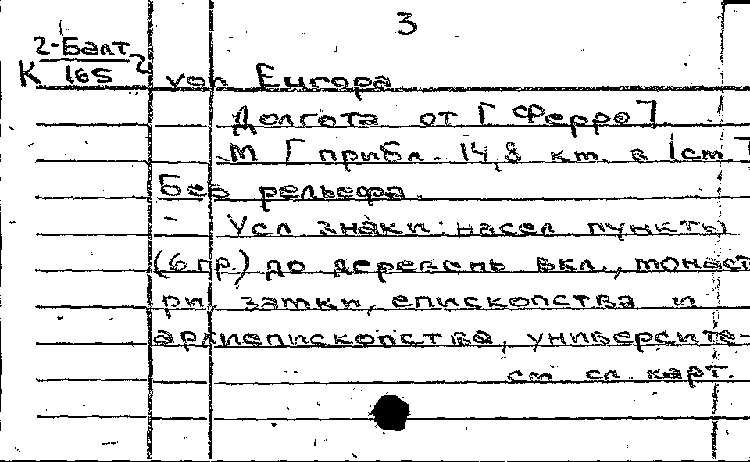 3
К 2-Балт 2
165
von Europa
Долгота от [Ферро].
М [прибл. 14,8 км. в 1 см.]
Без рельефа.
Усл знаки: насел пункты
(6 гр.) до деревень вкл., монаст
ри, замки, епископства и
архиепископства, университе-
см сл. карт.